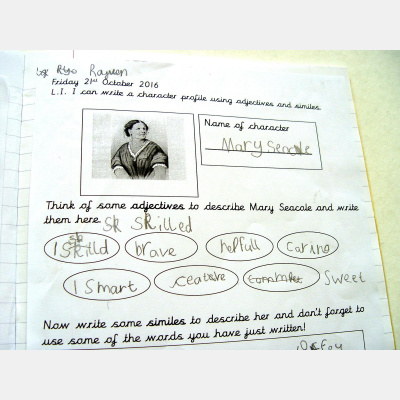 by Rayuen
Friday 21st October 2016
L.I. I can write a character profile using adjectives and similes.
Name of character
Mary Seacole
Think of some adjectives to describe Mary Seacole and write
them here sk skilled
skilld brave helpfull caring
smart sweet
Now write some similes to describe her and don't forget to
use some of the words you have just written!